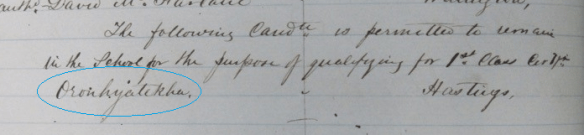 David M. Harland
The following Candte is permitted to remain
in the School for the purpose of qualifying for 1st Class Certft.
Oronhyatekha. " Hastings.